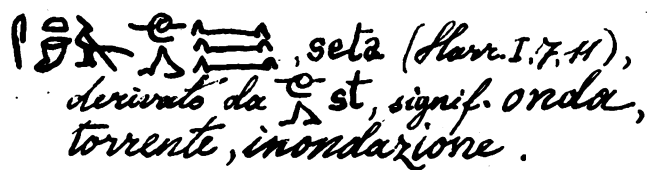 , seta (Harr. I, 7, 11),
derivato da st, signif. onda,
torrente, inondazione.